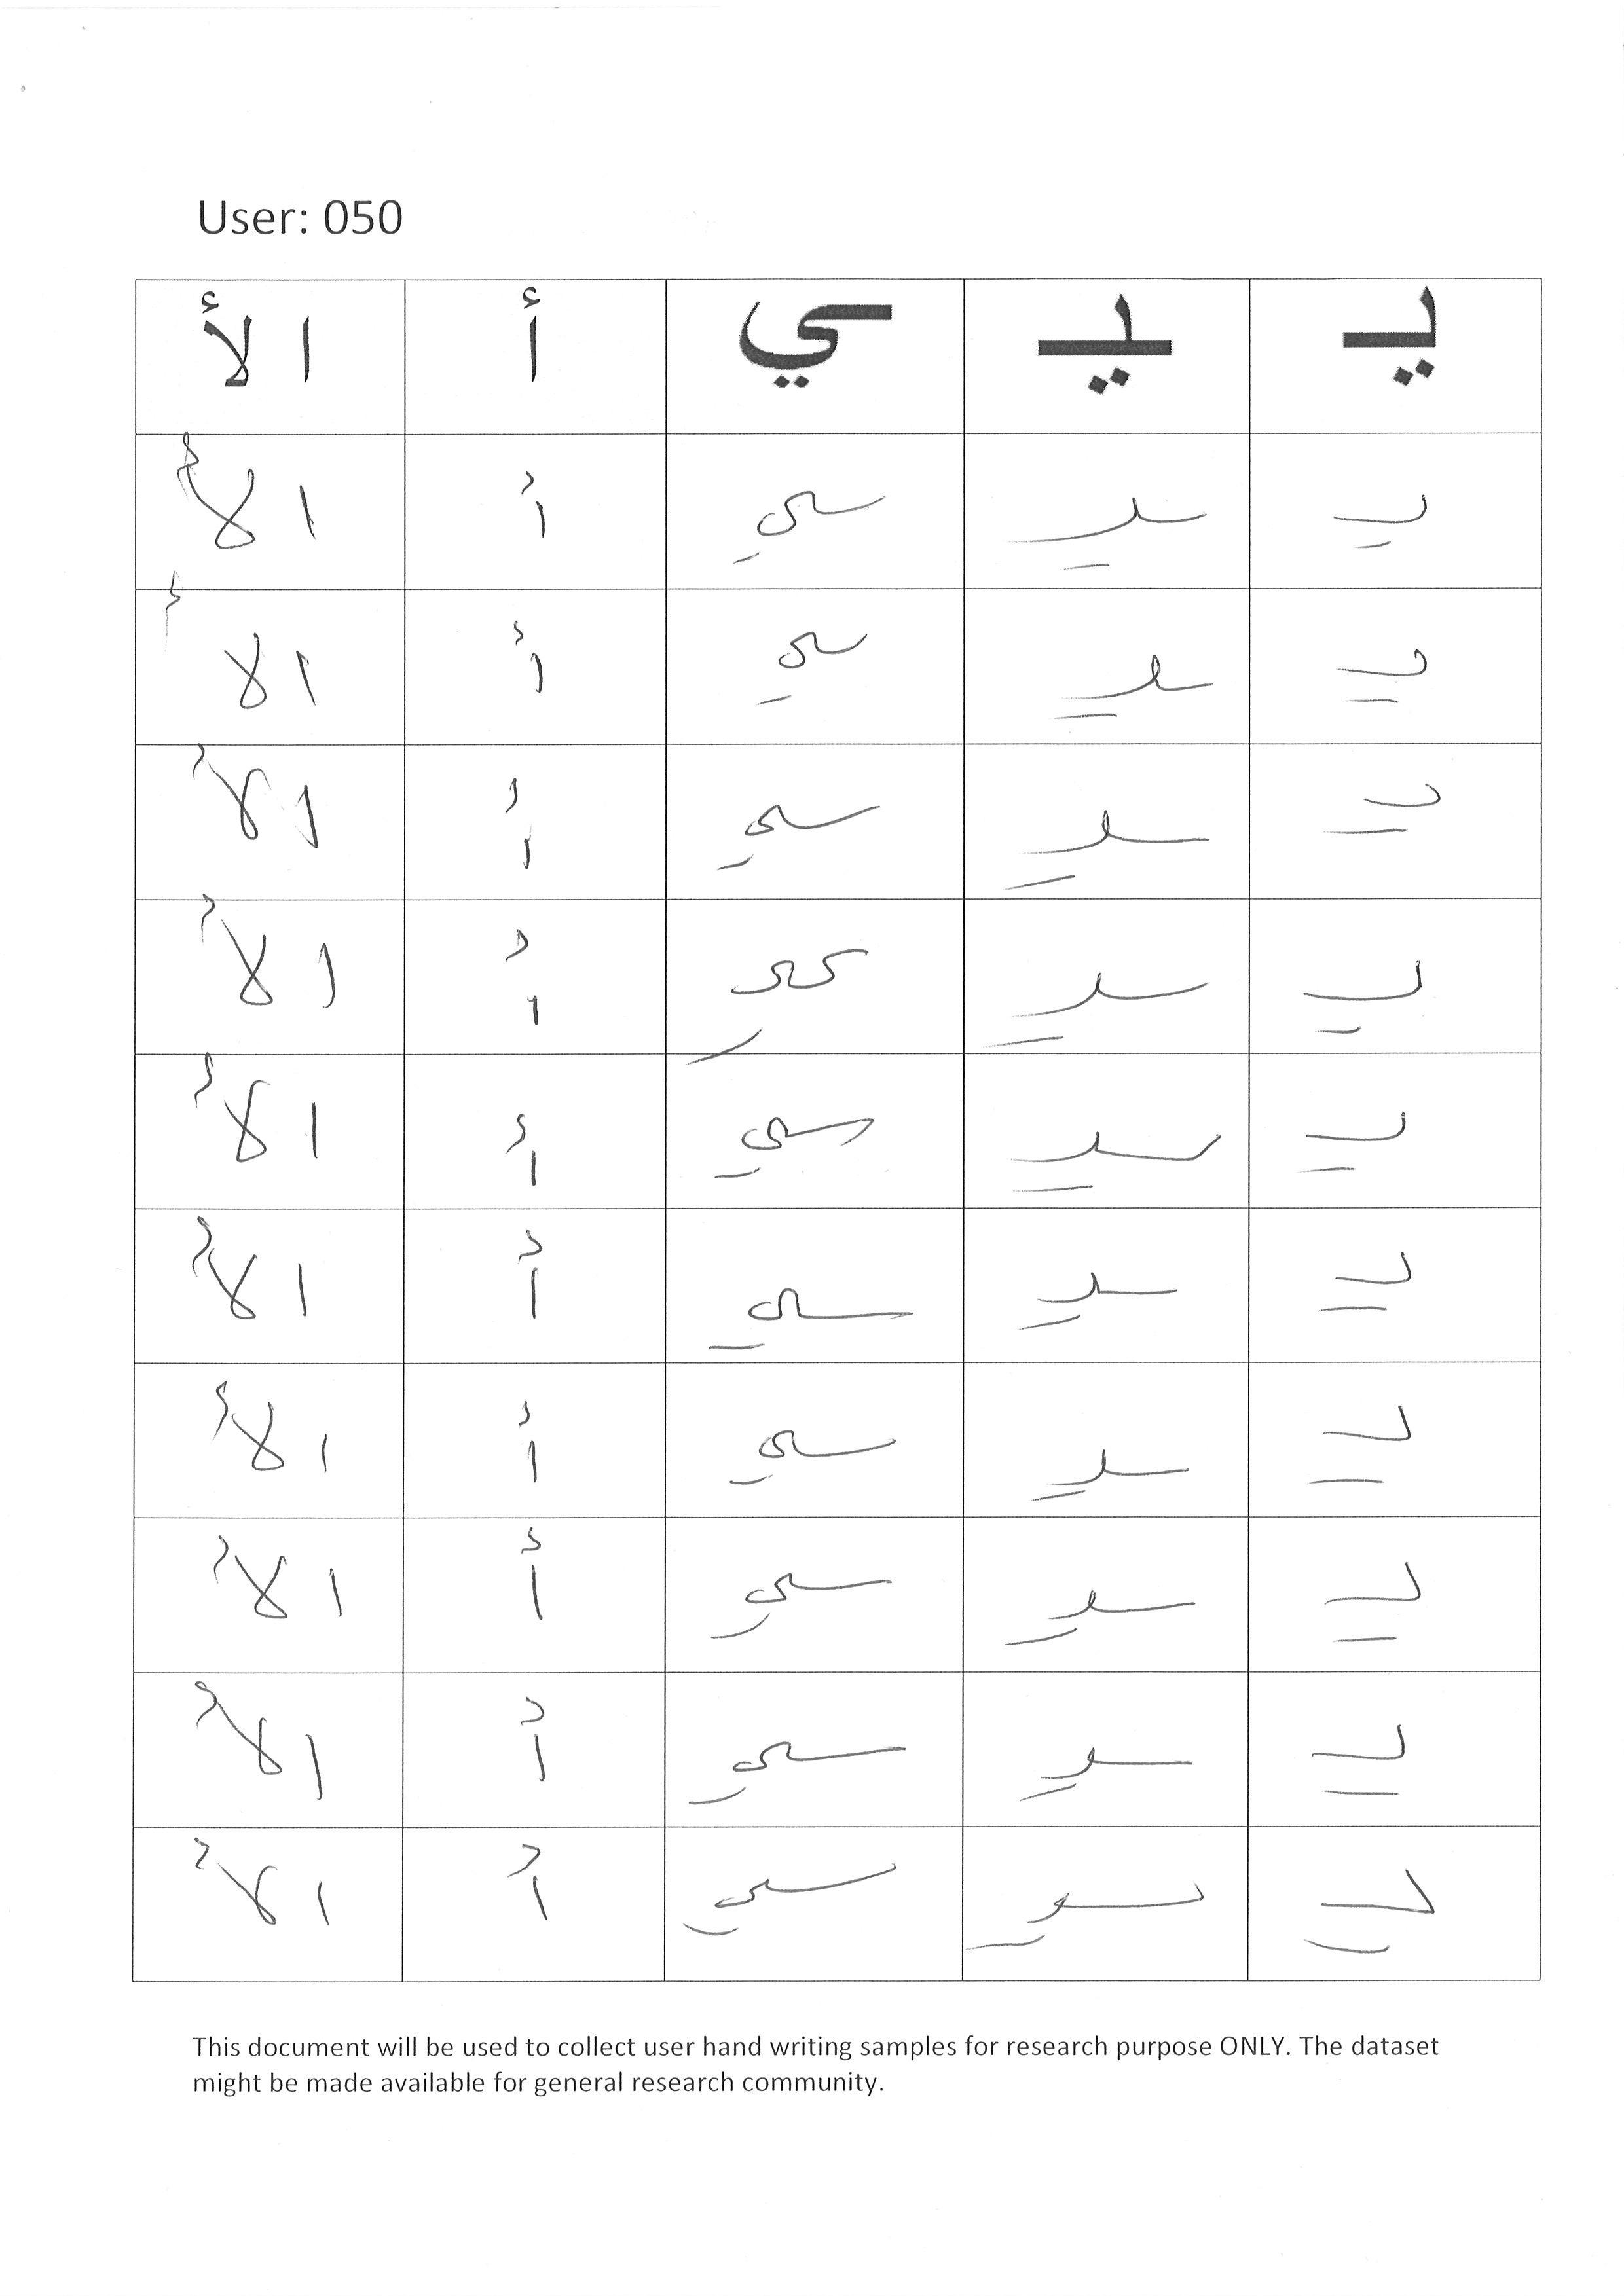 User: 050
يـ ـيـ ـي أ ا لأ
يـ ـيـ ـي أ ا لأ
يـ ـيـ ـي أ ا لأ
يـ ـيـ ـي أ ا لأ
يـ ـيـ ـي أ ا لأ
يـ ـيـ ـي أ ا لأ
يـ ـيـ ـي أ ا لأ
يـ ـيـ ـي أ ا لأ
يـ ـيـ ـي أ ا لأ
يـ ـيـ ـي أ ا لأ
يـ ـيـ ـي أ ا لأ
This document will be used to collect user hand writing samples for research purpose ONLY. The dataset
might be made available for general research community.